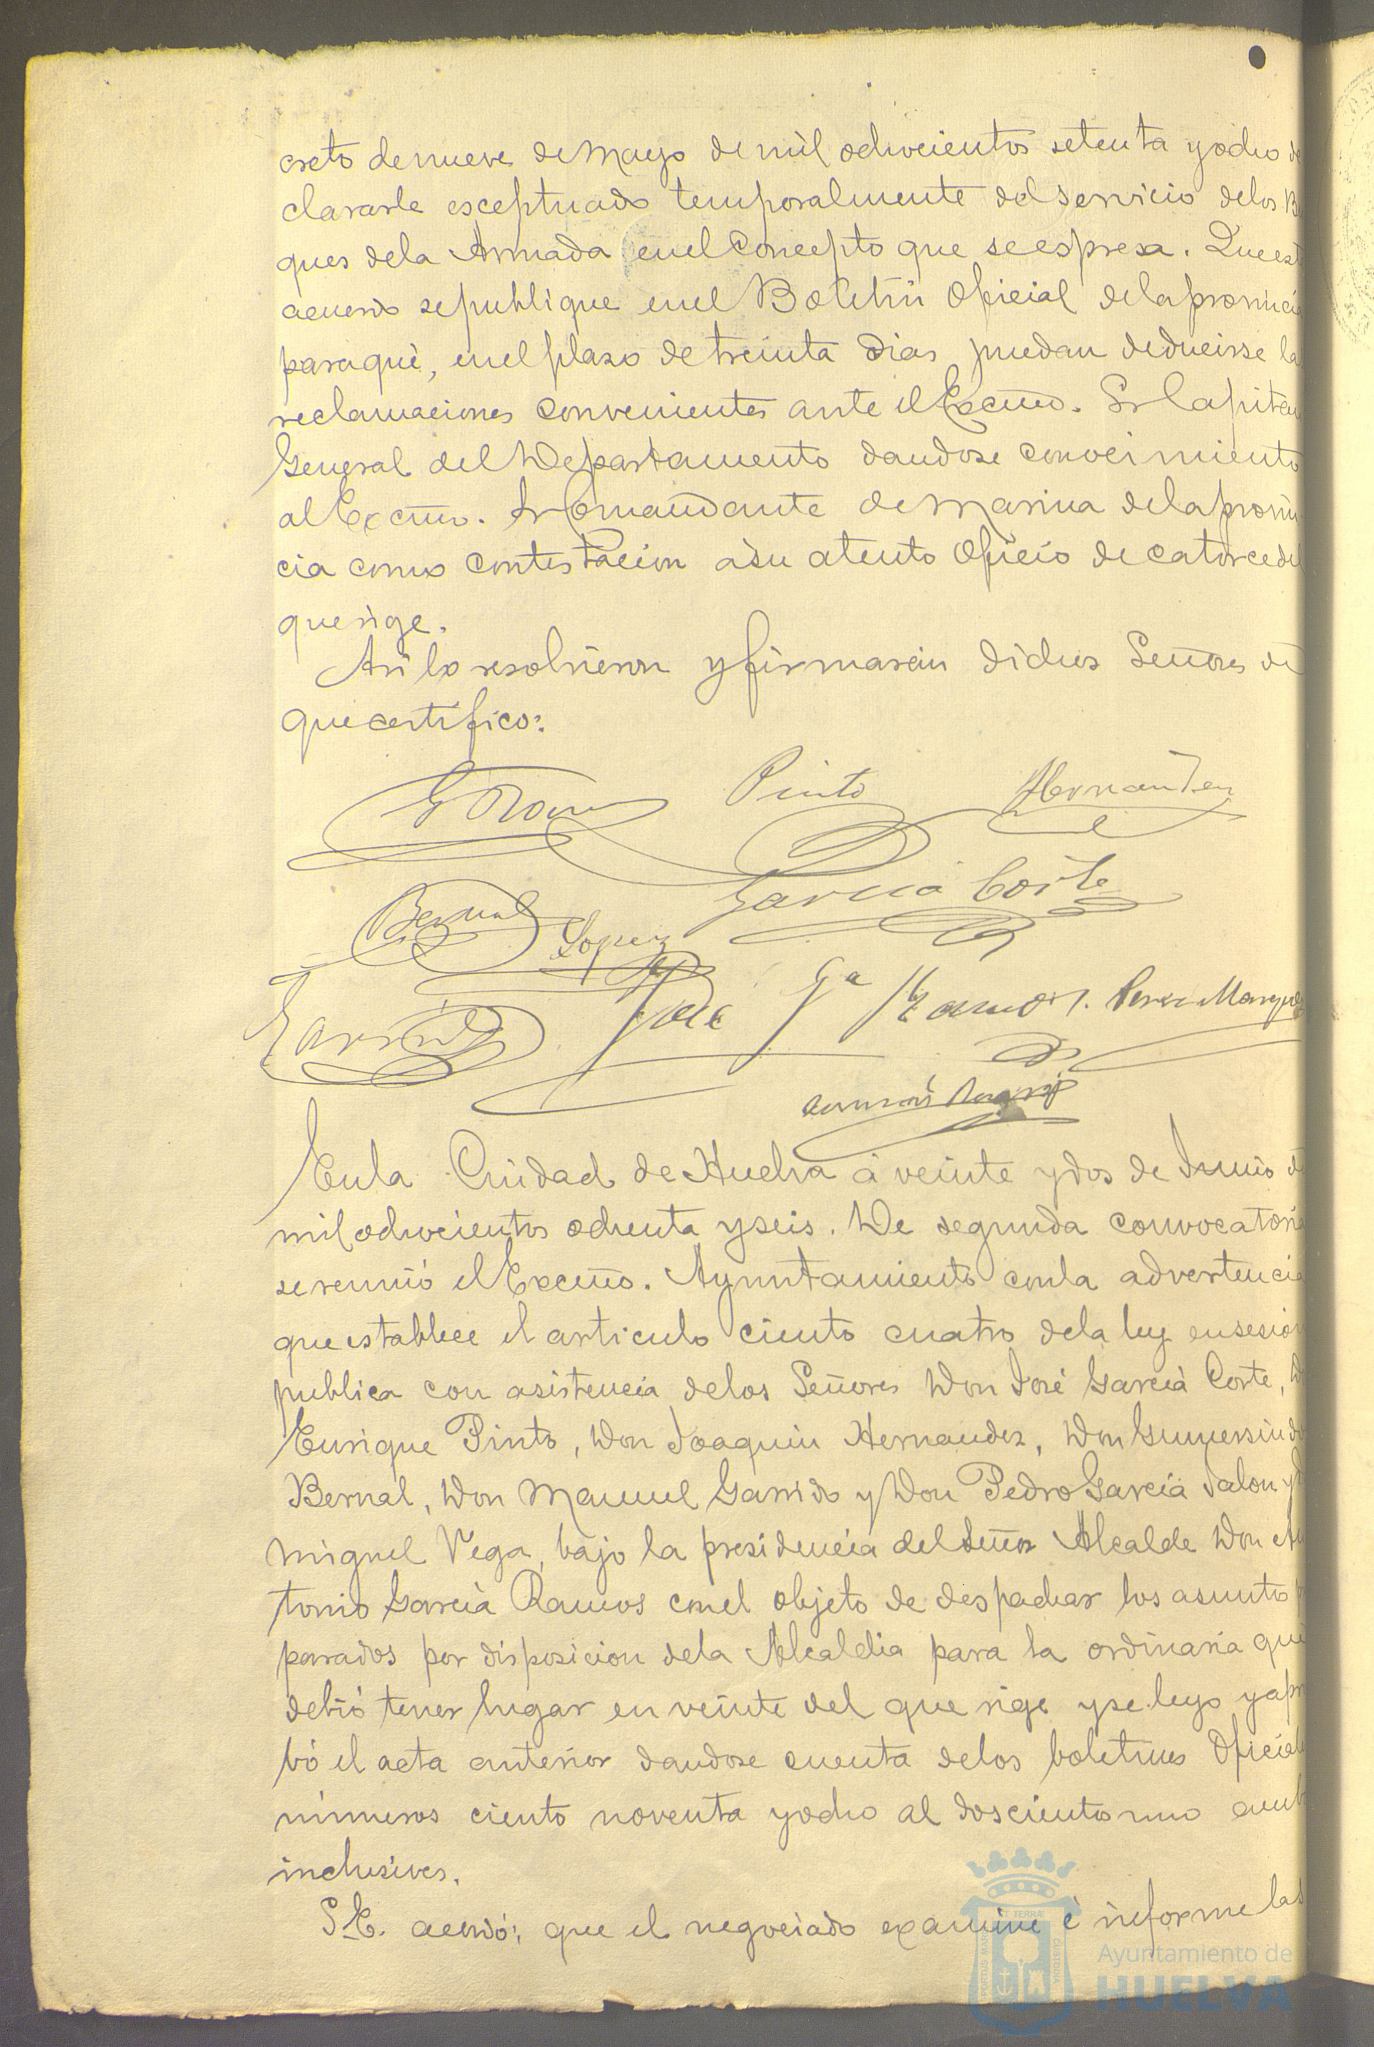 creto de nueve de Mayo de mil ochocientos setenta y ocho de
clararle esceptuado temporalmente del servicio de los Bu
ques de la Armada en el concepto que se espresa. Que est
acuerdo se publique en el Boletin Oficial de la provinci
para que, en el plazo de treinta dias puedan deducirse la
reclamaciones convenientes ante el Excmo. Sr Capitan
General del Departamento dandose conocimiento
al Excmo. Sr Comandante de Marina de la provin
cia como contestacion a su atento Oficio de catorce del
que rige.
Asi lo resolvieron y firmarán dichos Señores de
que certifico:
Pinto Hernandez
Bernal Lopez Garcia Corte
Garrido José Ga Ramos J. Perez Marquez
En la Ciudad de Huelva á veinte y dos de Junio de
mil ochocientos ochenta y seis. De segunda convocatoria
se reunió el Excmo. Ayuntamiento con la advertencia
que establece el articulo ciento cuatro de la ley en sesion
publica con asistencia de los Señores Don José Garcia Corte, D
Enrique Pinto, Don Joaquin Hernandez, Don Gumersindo
Bernal, Don Manuel Garrido y Don Pedro Garcia Jalon y D
Miguel Vega, bajo la presidencia del Señor Alcalde Don An
tonio Garcia Ramos con el objeto de despachar los asunto p
parados por disposicion de la Alcaldia para la ordinaria que
debió tener lugar en veinte del que rige y se leyo y apro
bó el acta anterior dandose cuenta de los boletines Oficiale
números ciento noventa y ocho al doscientos uno amb
inclusives.
S.E. acordó: que el negociado examine é informe las
Ayuntamiento de
HUELVA